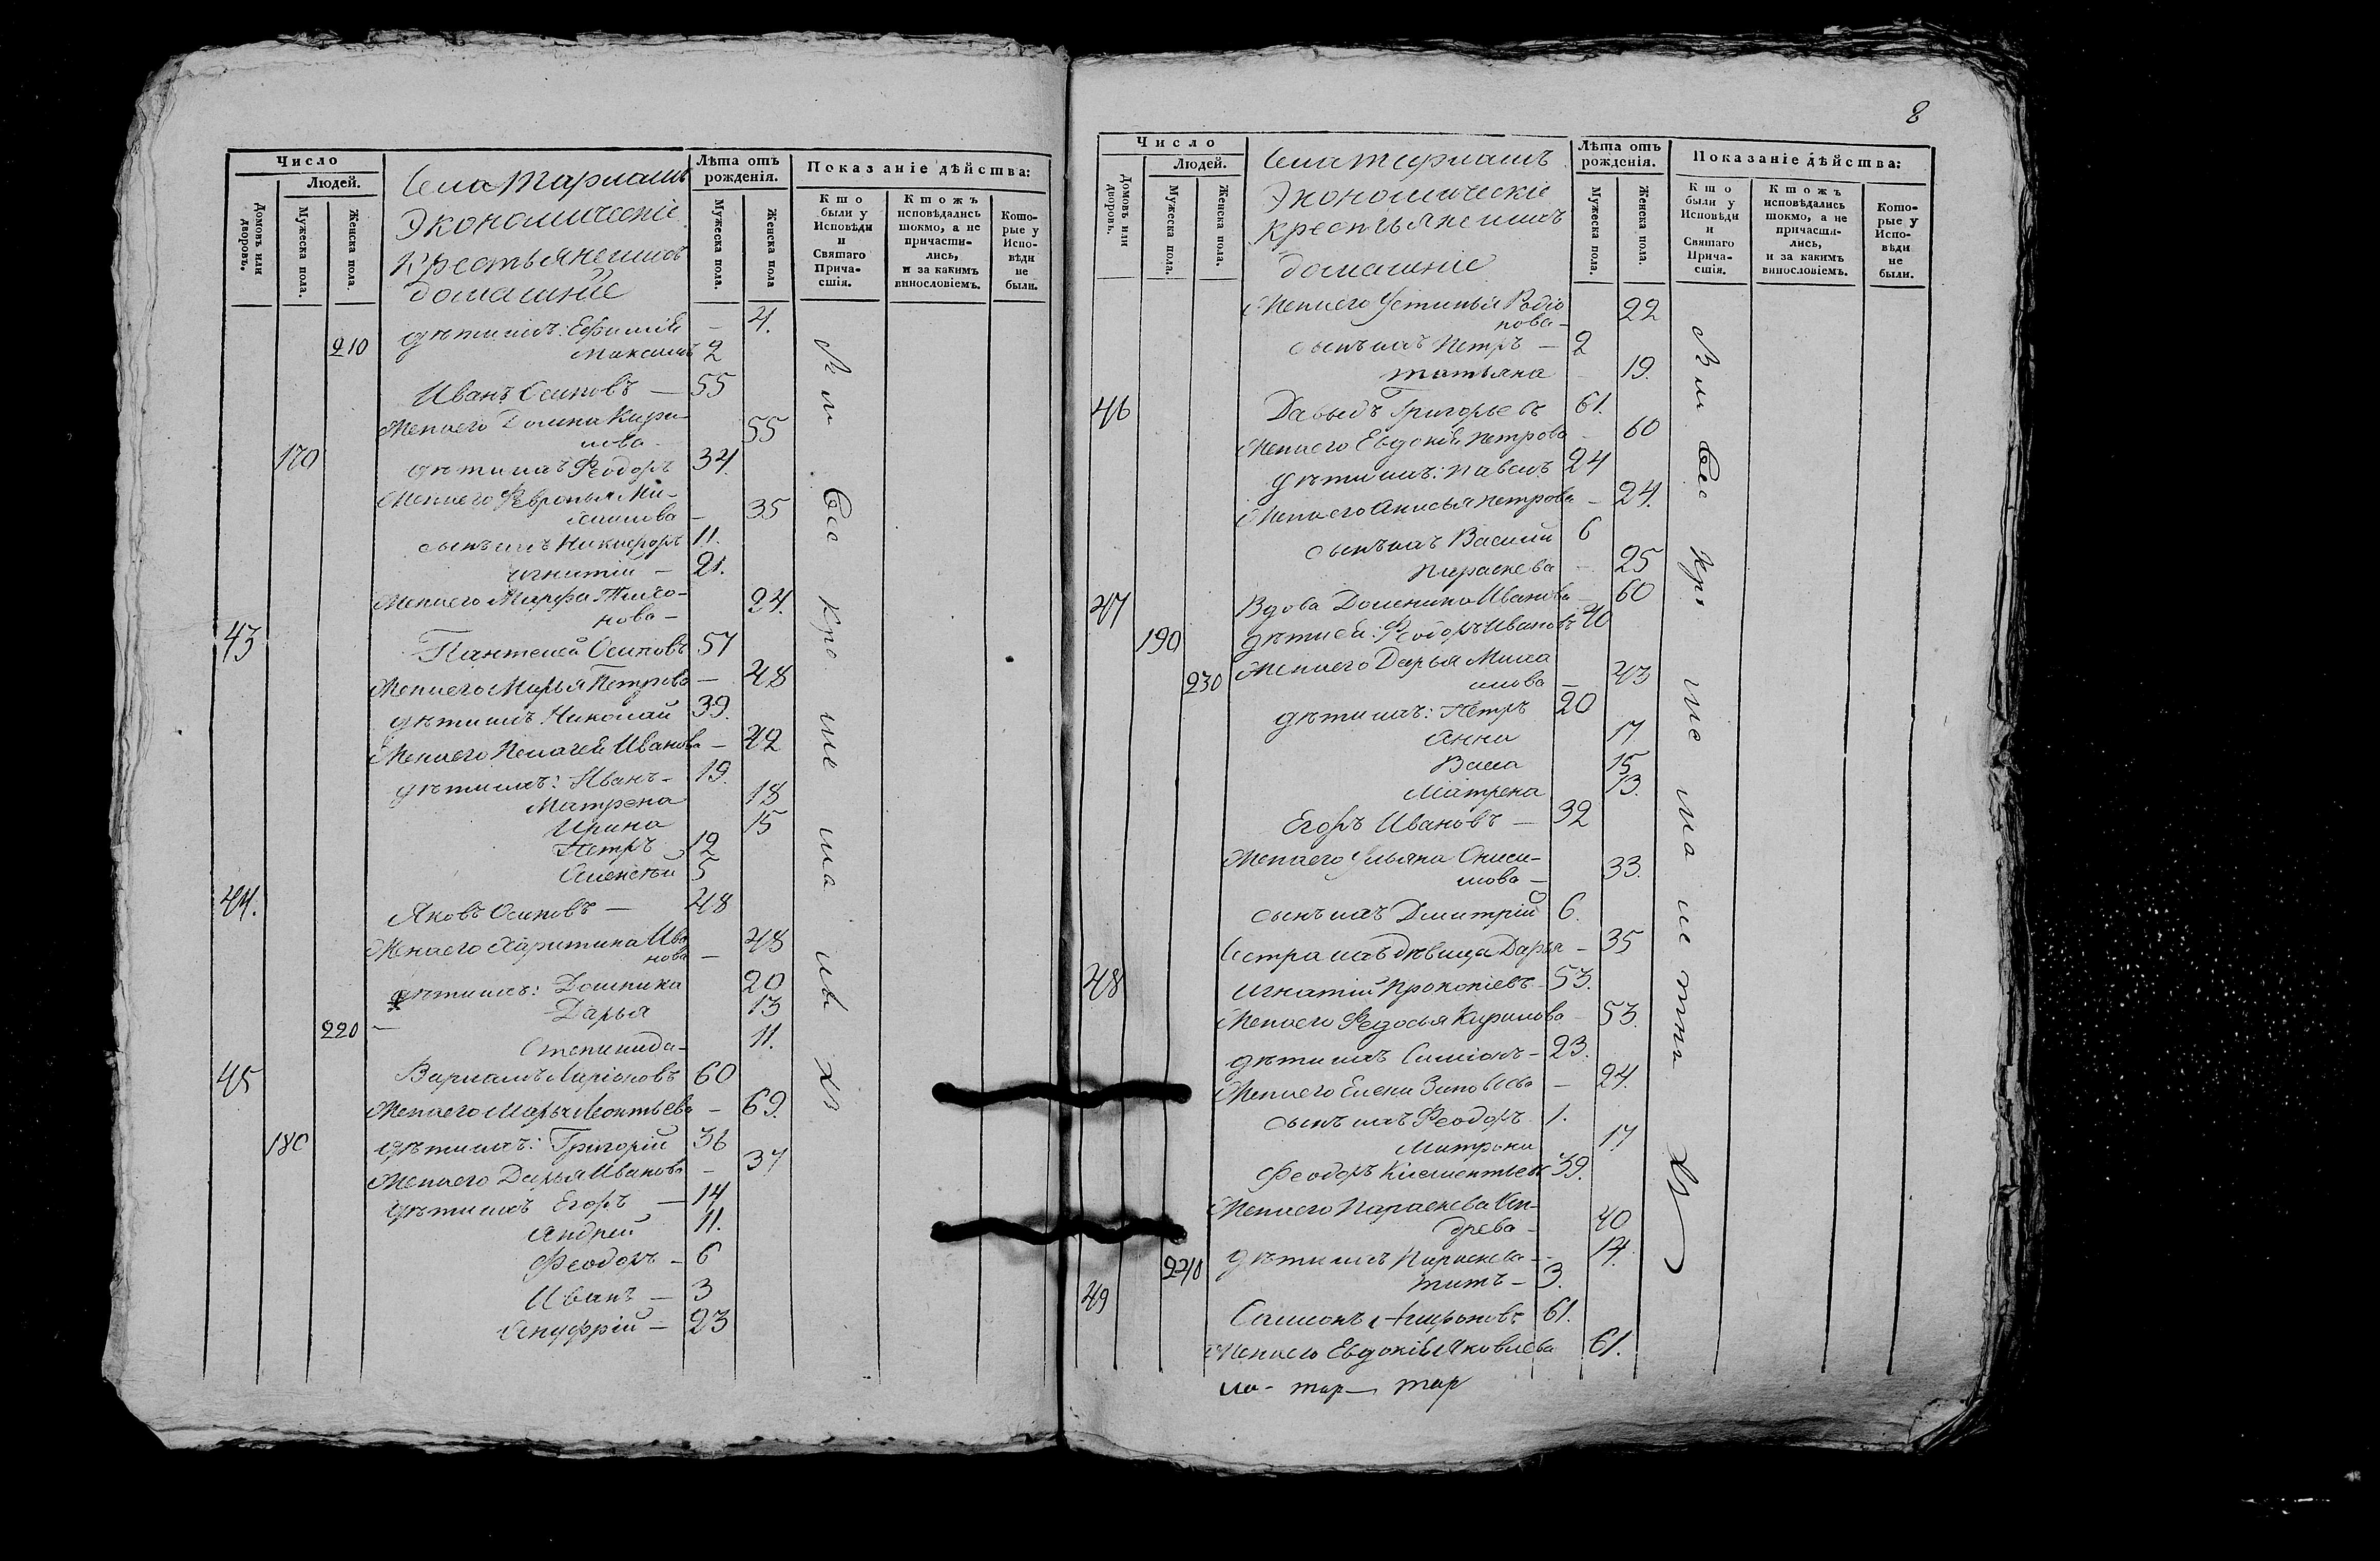 Число
Людей.
Домовъ или дворовъ.
Мужеска пола.
Женска пола.
Экономическіе
Крестьяне ихъ
домашніе
Лѣта отъ рожденія.
Мужеска пола.
Женска пола
Показаніе дѣйства:
Кто были у Исповѣди и Святаго Прича-стія.
Ктожъ исповѣдались токмо, а не причасти-лись, и за какимъ винословіемъ.
Кото-рые у Испо-вѣди не были.
дѣти ихъ: Ефимія — 4.
210 Максимъ 2
Иванъ Осиповъ — 55
Жена его Домна Кири-
лова 55
170 дѣти ихъ Ѳеодоръ 34.
Жена его Февронья Ми-
— 35
сынъ ихъ Никифоръ 11.
Игнатій — 21.
Жена его Марфа Тихо-
нова — 24.
43 Пантелей Осиповъ 57
Жена его Марья Петрова — 48
дѣти ихъ Николай 39.
Жена его Пелагея Иванова — 42
дѣти ихъ: Иванъ — 19.
Матрена 18
Ирина 15
Петръ 12
Алексѣй 5
44. Яковъ Осиповъ — 48
Жена его Харитина Ива
нова — 48
дѣти ихъ: Домника 20
Дарья 13
220 —
Степанида — 11.
45 Варламъ Ларіоновъ 60
Жена его Марья Леонтьева — 69.
180 дѣти ихъ: Григорій 36
Жена его Дарья Иванова — 37
дѣти ихъ Егоръ — 14
Андрей 11.
Феодоръ — 6
Иванъ — 3
Ануфрій — 23
8
Число
Людей.
Домовъ или дворовъ.
Мужеска пола.
Женска пола.
Экономическіе
крестьяне ихъ
домашніе
Лѣта отъ рожденія.
Мужеска пола.
Женска пола.
Показаніе дѣйства:
Кто были у Исповѣди и Святаго Прича-стія.
Ктожъ исповѣдались токмо, а не причасти-лись, и за какимъ винословіемъ.
Кото-рые у Испо-вѣди не были.
Жена его Устинья Родіо
нова — 22
сынъ ихъ Петръ — 2
татьяна 19.
46 Давыдъ Григорьевъ 61.
Жена его Евдокія петрова 60
дѣти ихъ: павелъ 24
Жена его Анисья петрова — 24.
сынъ ихъ Василій 6
параскева — 25
47 Вдова Домникія Иванова — 60
190 дѣти ей: Ѳеодоръ Ивановъ 40
Жена его Дарья Миха
230 илова — 43
дѣти ихъ: Петръ 20
Анна 17
Васса 15
Матрена 13.
Егоръ Ивановъ — 32
Жена его Ульяна Ониси-
мова — 33.
сынъ ихъ Дмитрій 6.
Сестра ихъ дѣвица Дарья — 35
48 Игнатій Прокопіевъ — 53.
Жена его Ѳедосья Кирилова — 53.
дѣти ихъ Симіонъ — 23.
Жена его Елена Зиновьева — 24.
сынъ ихъ Феодоръ 1.
Матрона 17
Феодоръ Клементьевъ 39.
Жена его Параскева Ан-
древа — 40
дѣти ихъ Параскева — 14.
240 титъ — 3.
49
Самсонъ 61.
Жена его Евдокія Яковлева 61.